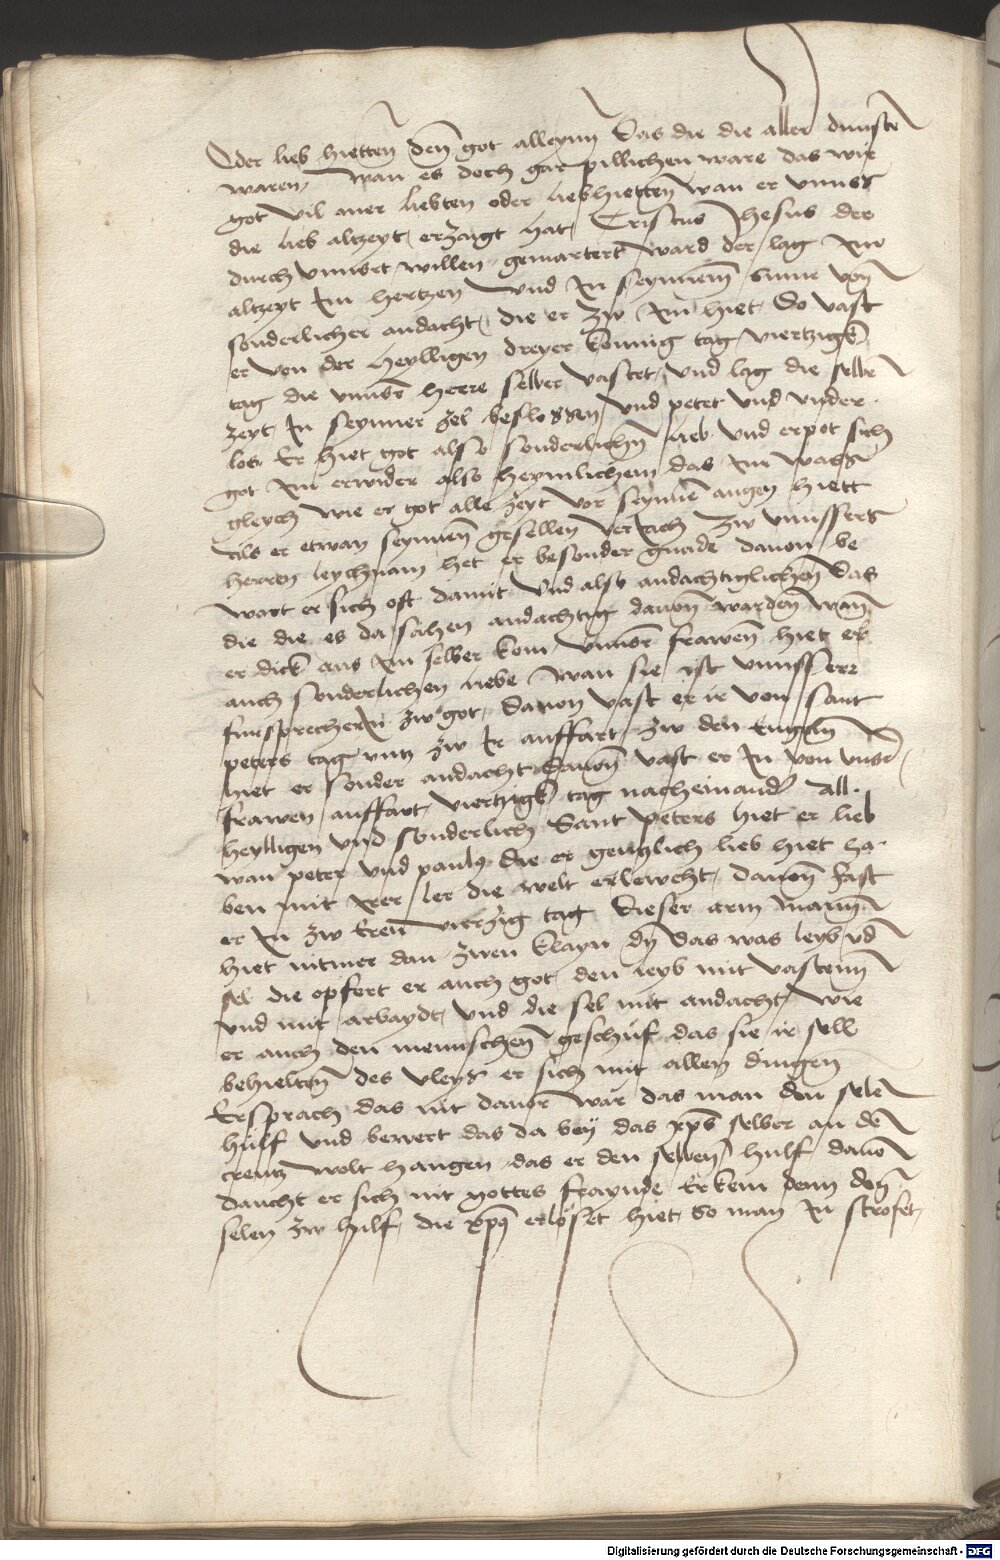 oder lieb hietten den̄ got alleynn Das die die aller dunste
waren, wan es doch gar pillichen ware das wir
got vil mer liebten oder lieb hietten wan er vnns
die lieb altzeyt erzaigt hat, Cristus Jhesus der
durch vnnsert willen gemartert ward der lag Im
altzeyt Im hertzen vnd In seynnem̄ sinne von̄
sonderlicher andacht, die er zw Im hiet, So vast
er von der heylligen dreyer konnig tag viertzigk
tag die vnnser herre selber vastet, vnd lag die selbē
zeyt In seynner zel beslossen, vnd petet vnd vnder
los. Er hiet got also sonderlichn̄ lieb vnd erpot sich
got Im erwider also heymlichem das Im was
gleych wie er got alle zeyt vor seynnē augen hiett
Als er etwan seynnen̄ gesellen veriach zw vnnssers
herren leychnam het er besonder gnade dauon be
wart er sich oft damit vnd also andachtiglichen̄ das
die die es da sahen andachtig dauon̄ warden̄ wan̄
er dick aus Im selber kom, vnnser frawen̄ hiet er
auch sonderlichen liebe wan sie ist vnnssere
fursprecherin zw got, dauon vast er ir von sant
peters tag vntz zw ir auffart, zw den engeln̄
hiet er sonder andacht dauon̄ vast er In von vnser
frawen auffart, viertzigk tag nacheinander All.
heylligen vnd sonderlich Sant peters hiet er lieb
wan peter vnd paulus die er gentzlich lieb hiet ha
ben mit irer ler die welt erlewcht, dauon̄ fast
er In zw eren̄ vierzig tag dieser arm mann̄
hiet nitmer dan zwen klayn dy das was leyb vn̄d
sel die opfert er auch got, den leyb mit vastenn̄
vnd mit arbaydt, vnd die sel mit andacht, wie
er auch den mennschen̄ geschuf das sie ir sell
behielten̄ des vleys er sich mit allen dingen
Er sprach das nit dauor war das man den selē
hulf vnd bewert das da bey das xp̄s selber an dē
creutz wolt hangen das er den selben̄ hulf dauō
daucht er sich nit gottes fraynde Er kem denn den̄
selen zw hilf, die xp̄s erlöset hiet, So man In strofet,
Digitalisierung gefördert durch die Deutsche Forschungsgemeinschaft - DFG